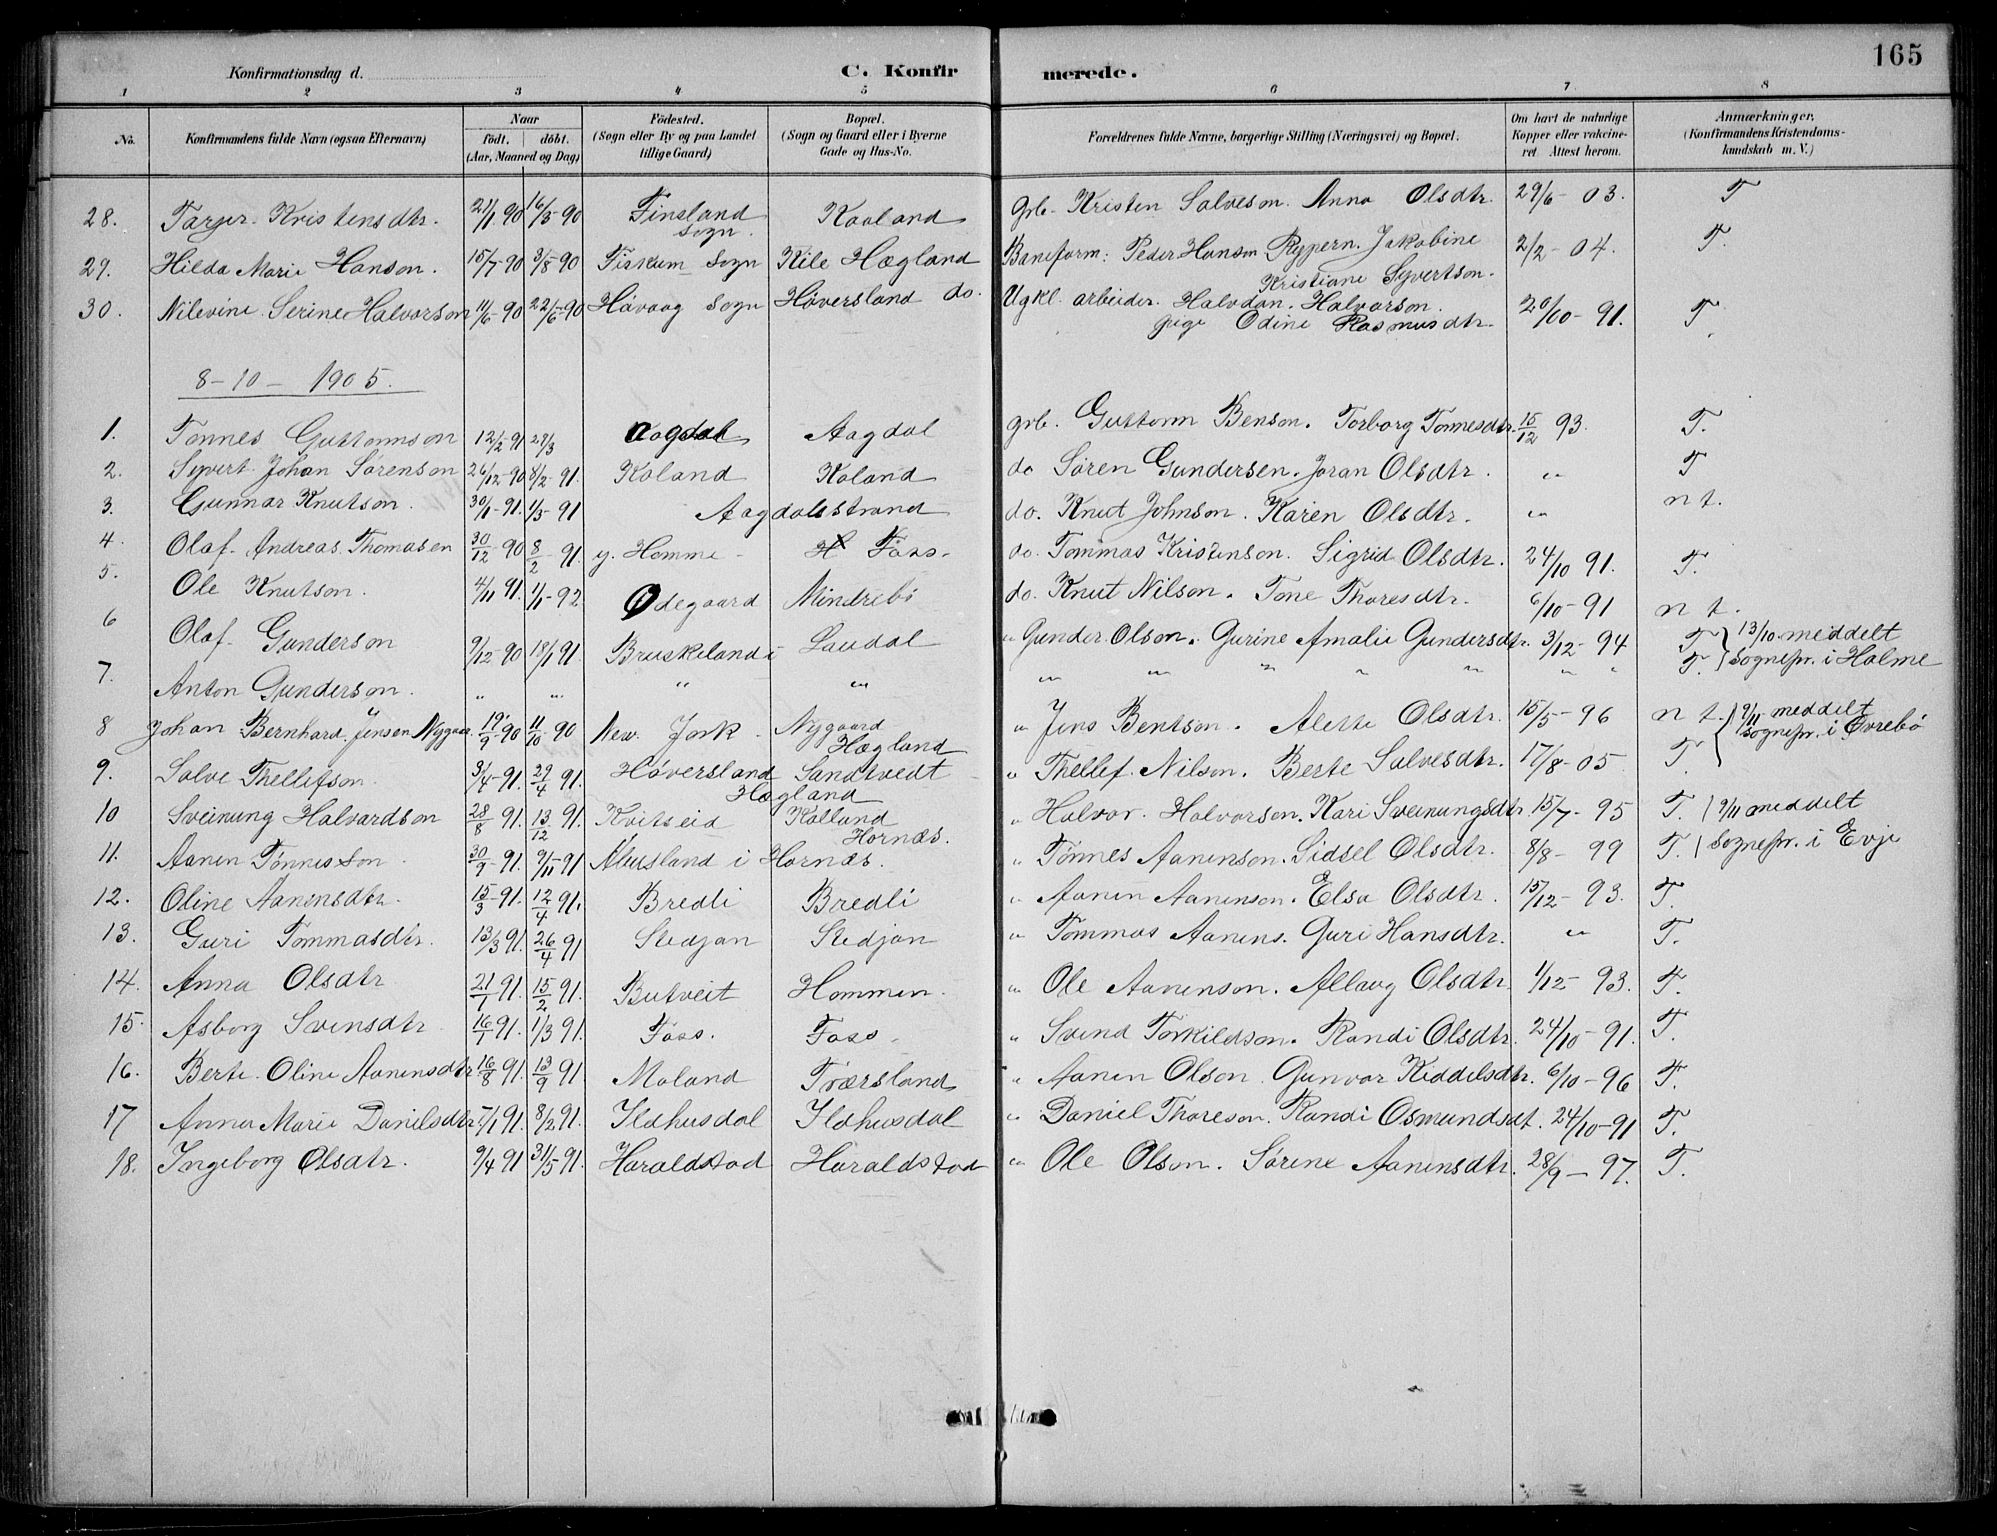 165
Konfirmationsdag d. C. Konfirmerede.
1 2 3 4 5 6 7 8
No. Konfirmandens fulde Navn (ogsaa Efternavn) Naar födt. döbt. (Aar, Maaned og Dag) Födested. (Sogn eller By og paa Landet tillige Gaard) Bopæl. (Sogn og Gaard eller i Byerne Gade og Hus-No. Forældrenes fulde Navne, borgerlige Stilling (Næringsvei) og Bopæl. Om havt de naturlige Kopper eller vakcineret Attest herom. Anmærkninger. (Konfirmandens Kristendomskundskab m. V.)
28. Tarjer Kristensdtr. 21/1 90 16/3-90 Finsland Sogn. Kaaland Grb. Kristen Salveson. Anna Olsdtr. 29/6-03. T
29. Hilda Marie Hanson. 15/7-90 3/8 90 Fiskum Sogn Kile Hægland Baneform: Peder Hanson Rypern. Jakobine Kristiane Syvertson. 2/2-04. T.
30. Nilevine Serine Halvorson 11/6-90 22/6-90 Hövaag Sogn Höversland do. Ugkl. arbeider. Halvdan. Halvorson. pige Odine Rasmusdtr. 20/10-91. T.
8-10-1905.
1. Tönnes Guttormson 12/2-91 29/3 Aagdal Aagdal grb. Guttorm Benson. Torborg Tönnesdtr. 15/12 93. T.
2. Syvert Johan Sörenson 26/12-90 8/2-91. Koland Koland do Sören Gundersen. Joran Olsdtr. " T
3. Gunnar Knutson. 30/1-91. 1/3-91 Aagdalstrand do. Knut Johnson. Karen Olsdtr. " n t.
4. Olaf Andreas Thomasen 30/12-90 8/2-91. y. Homme Foss. do. Tommas Kristenson. Sigrid Olsdtr. 24/10 91. T.
5. Ole Knutson. 4/11 91. 1/1-92 Ødegaard Mindrebö do. Knut Nilson. Tone Thoresdtr. 6/10-91 n t.
6 Olaf Gunderson 9/12-90 18/1 91. Bruskeland i Laudal " Gunder Olson. Gurine Amalie Gundersdtr. 3/12-94 T. } 13/10 meddelt
7. Anton Gunderson. " " " " " " " " " " " T. } Sognepr. i Holme
8 Johan Bernhard Jensen Nygaar. 19/9-90 11/10-90 New. York Nygaard Hægland " Jens Bentson. Alette Olsdtr. 15/5-96 n t. } 9/11 meddelt Sognepr. i Øvrebö
9. Salve Thellefson. 3/4-91. 29/4 91. Höversland Hægland Sandtvedt " Thellef Nilson. Berte Salvesdtr. 17/8-05 T.
10 Sveinung Halvardson 28/8 91. 13/12 91. Kvitseid Kolland Hornæs. " Halvor Halvorsen. Kari Sveinungsdtr 15/7-95 T. } 9/11 meddelt
11. Aanen Tönnesson. 30/9-91. 9/11-91 Abusland i Hornæs. " Tönnes Aanenson. Sidsel Olsdtr. 8/8-99 T. } Sognepr. i Evje
12. Oline Aanensdtr. 15/3-91. 12/4 91. Bredli Bredli " Aanen Aanenson. Elsa Olsdtr. 15/12-93. T.
13. Guri Tommasdtr. 13/3 91. 26/4 91 Stedjan Stedjan " Tommas Aanens. Guri Hansdtr. " T.
14. Anna Olsdtr 21/1 91. 15/2 91. Butveit Hommen. " Ole Aanenson. Allaug Olsdtr. 1/12-93. T.
15. Asborg Svensdtr. 16/1 91. 1/3 91. Foss. Foss " Svend Torkildson. Randi Olsdtr. 24/10-91. T.
16. Berte Oline Aanensdtr. 16/8 91. 13/9 91. Moland Tværsland " Aanen Olson. Gunvor Kiddelsdtr. 6/10-96 T.
17 Anna Marie Danielsdtr. 7/1 91. 8/2 91. Ildhusdal Ildhusdal " Daniel Thoreson. Randi Osmundsdt. 24/10-91 T.
18. Ingeborg Olsdtr. 9/4 91 31/5 91. Haraldstad Haraldstad " Ole Olson. Sörine Aanensdtr. 28/9-97. T.